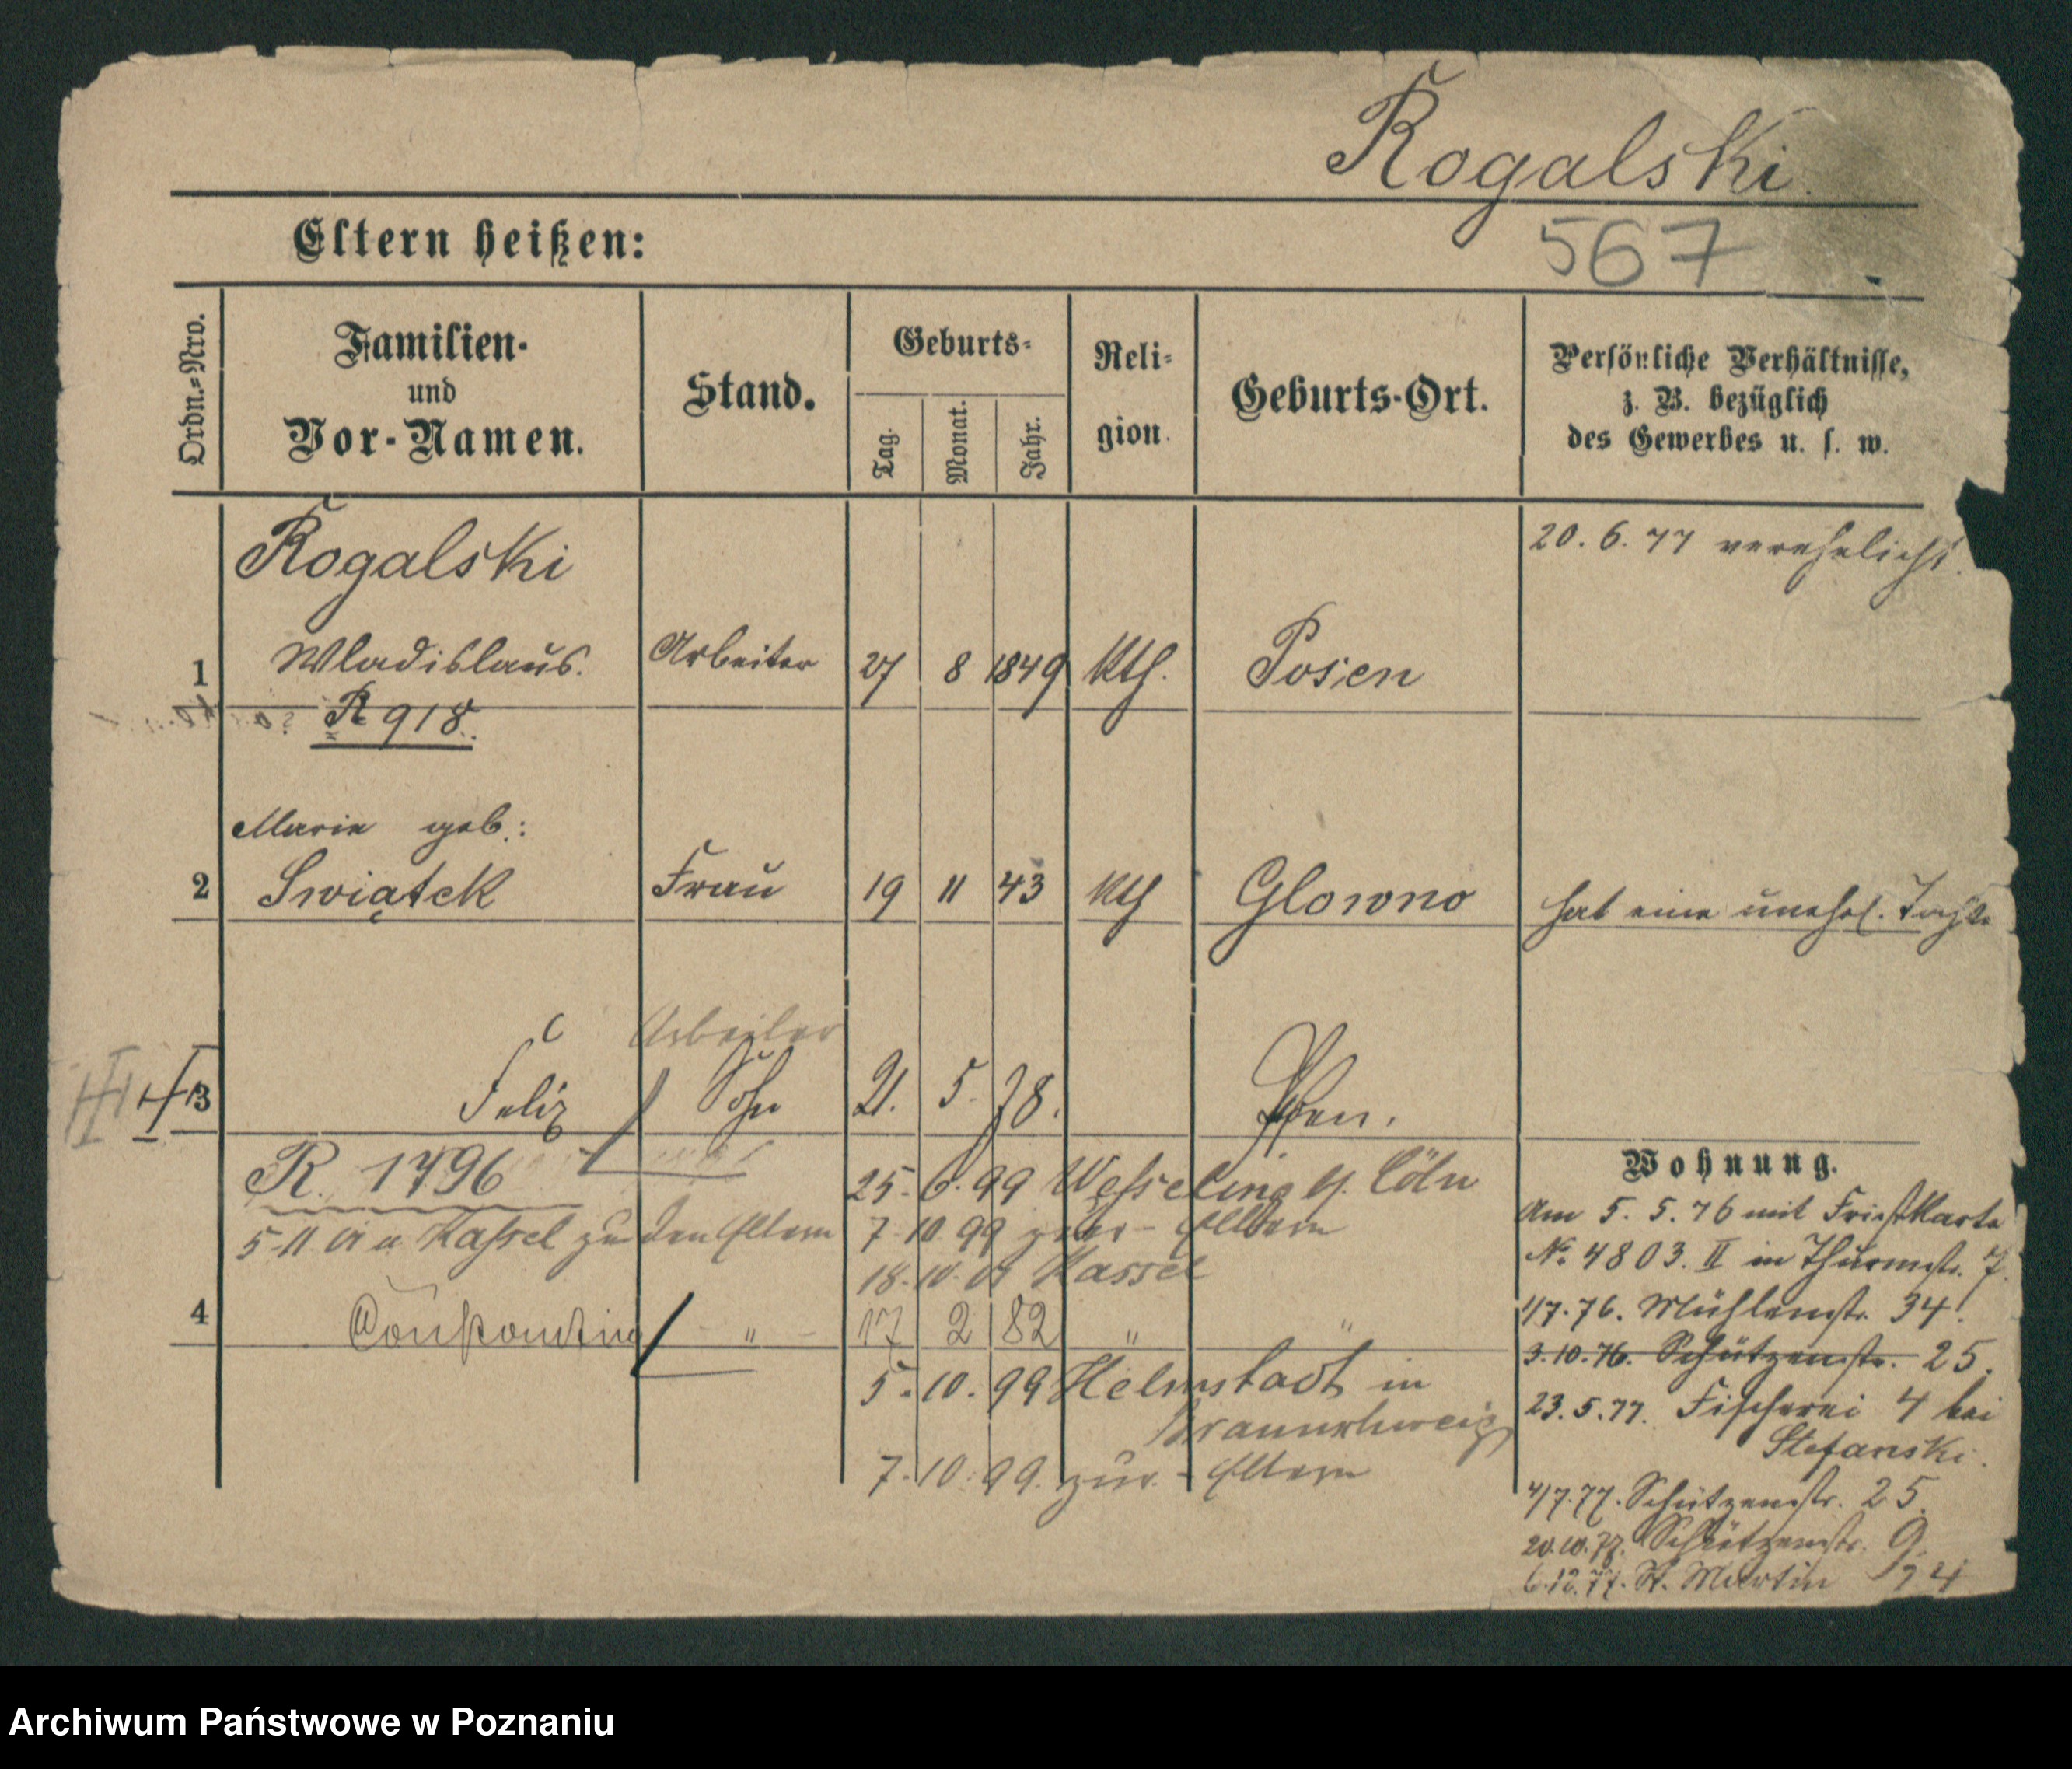 Rogalski.
567
Eltern heißen:
Ordn.=Nro.
Familien-
und
Vor-Namen.
Stand.
Geburts=
Tag.
Monat.
Jahr.
Reli=
gion.
Geburts-Ort.
Persönliche Verhältnisse,
z. B. bezüglich
des Gewerbes u. s. w.
20. 6. 77 verehelicht.
Rogalski
1 Wladislaus. Arbeiter 27 8 1849 Kth. Posen
R 918.
Marie geb.:
2 Swiątek Frau 19 11 43 Kth Glowno hat eine unehel. Tocht
Arbeiter
3 Felix Sohn 21. 5. 78. Posen.
R. 1796
25. 6. 99 Wesseling b. Cöln
5 11 01 a Kassel zu den Eltern
7 10 99 zur - Eltern
18. 10. 01 Kassel
4 Constantin " 17 2 82 " "
5. 10. 99 Helmstadt in
Braunschweig
7. 10. 99. zur. - Eltern
Wohnung.
Am 5. 5. 76 mit Fristkarte
No 4803. II in Thurmstr. 7.
1/7. 76. Mühlenstr. 34.
3. 10. 76. Schützenstr. 25.
23. 5. 77. Fischerei 4 bei
Stefanski.
4/7. 77. Schützenstr. 25.
20. 10. 77. Schützenstr. 9.
6. 12. 77. St. Martin 74
Archiwum Państwowe w Poznaniu